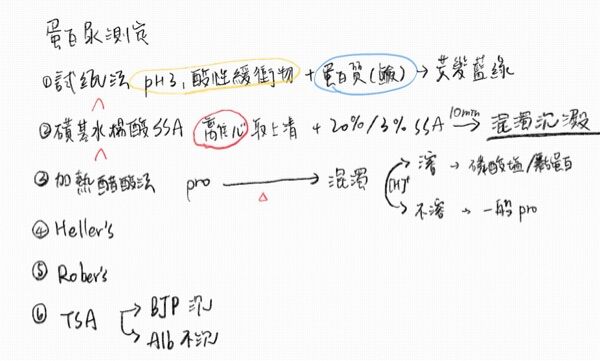 蛋白尿測定
①試紙法 pH3,酸性緩衝物 + 蛋白質(鹼) → 黃變藍綠
②磺基水楊酸SSA 離心取上清 + 20%/3% SSA 10min→ 混濁沉澱
③加熱醋酸法 pro → 混濁 [H]⁺ 溶 → 磷酸塩/黏蛋白
△ 不溶 → 一般pro
④Heller's
⑤Rober's
⑥TSA → BJP 沉
→ Alb 不沉